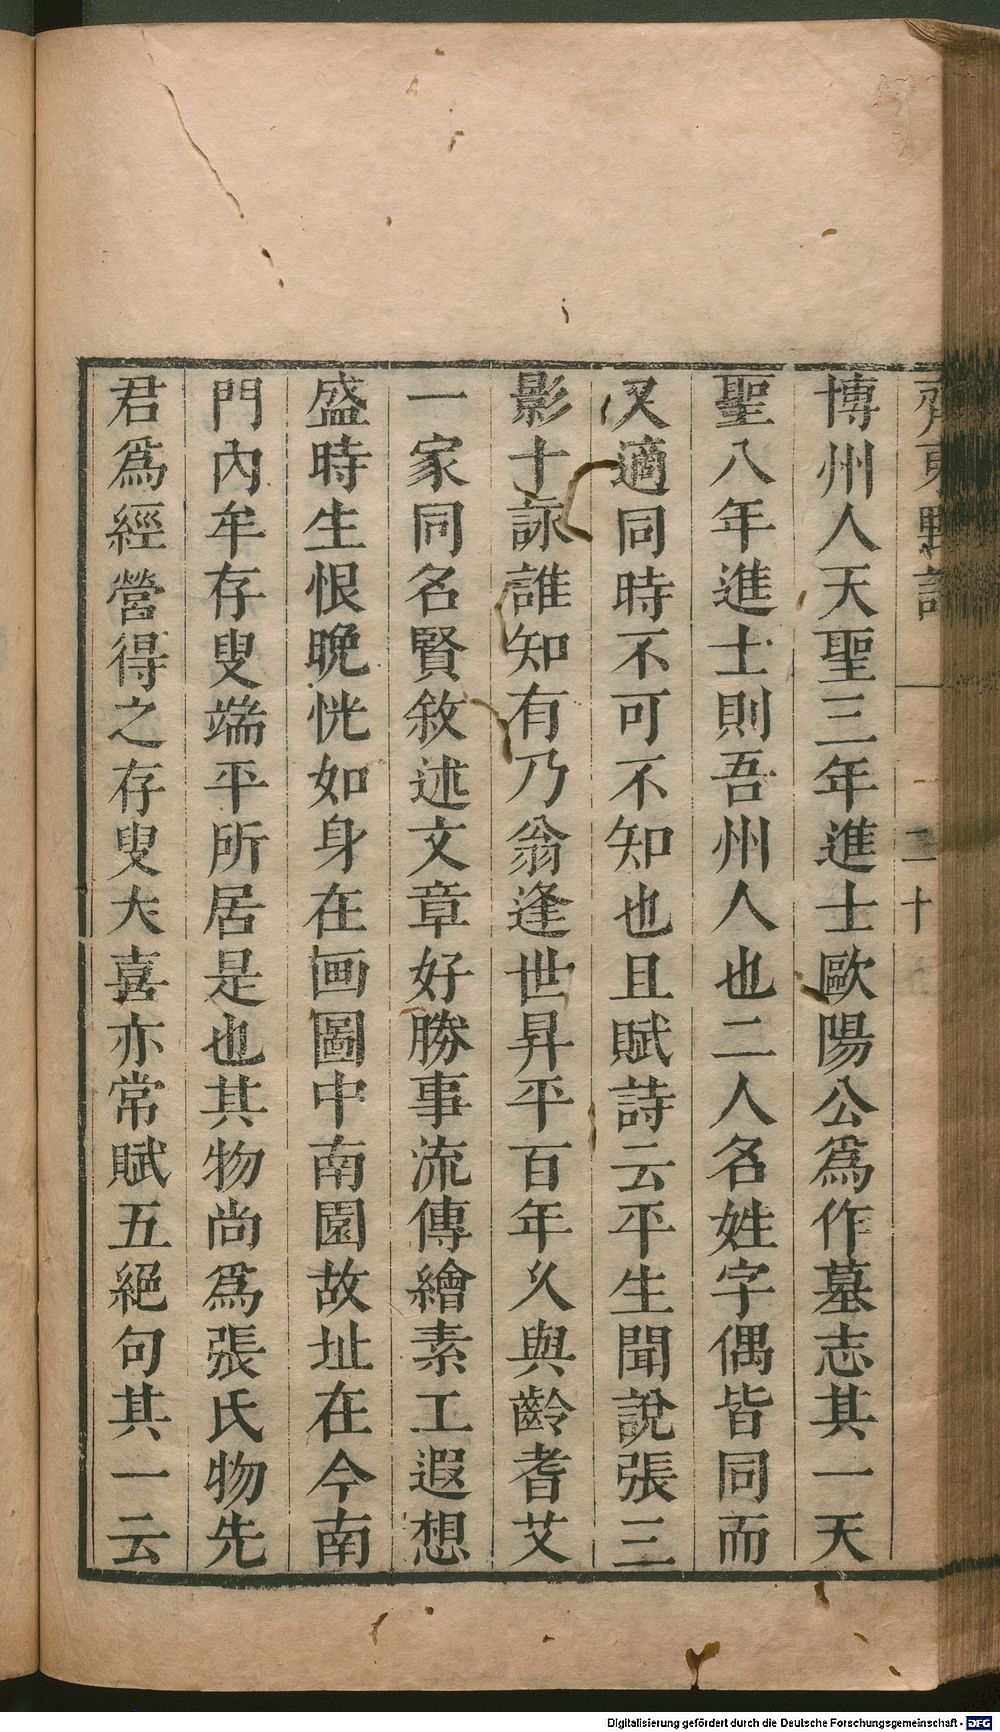 博州人天聖三年進士歐陽公爲作墓志其一天
聖八年進士則吾州人也二人名姓字偶皆同而
又適同時不可不知也且賦詩云平生聞說張三
影十詠誰知有乃翁逢世昇平百年久與齡耆艾
一家同名賢敘述文章好勝事流傳繪素工遐想
盛時生恨晩恍如身在画圖中南園故址在今南
門內牟存叟端平所居是也其物尚爲張氏物先
君爲經營得之存叟大喜亦常賦五絕句其一云
二十
Digitalisierung gefördert durch die Deutsche Forschungsgemeinschaft - DFG